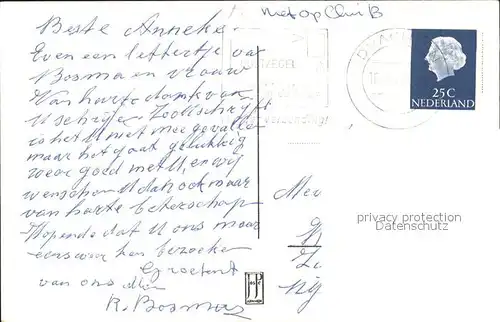 Met op
Beste Anneke.
Even een lettertje van
Bosma en vrouw
Van harte dank voor
U schrijven Zoals U schrijft
is het U niet mee gevallen
maar het gaat gelukkig
weer goed met U, en wij
wenschen U dan ook maar
van harte beterschap
Hopende dat U ons maar
eens weer kan bezoeken
Groetend
van ons allen
R. Bosma
POSTZEGEL
25 C
NEDERLAND
Mev
privacy protection
Datenschutz
JosPé